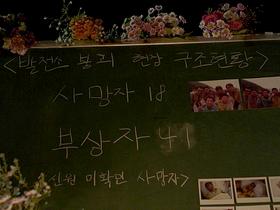 <발전소 붕괴 현장 구조현황>
사망자 18
부상자 41
<신원 미확인 사망자>